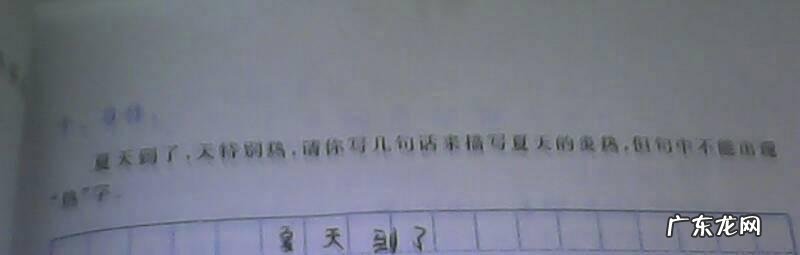 十、写作。
夏天到了,天特别热,请你写几句话来描写夏天的炎热,但句中不能出现
“热”字.
夏天到了
广东龙网